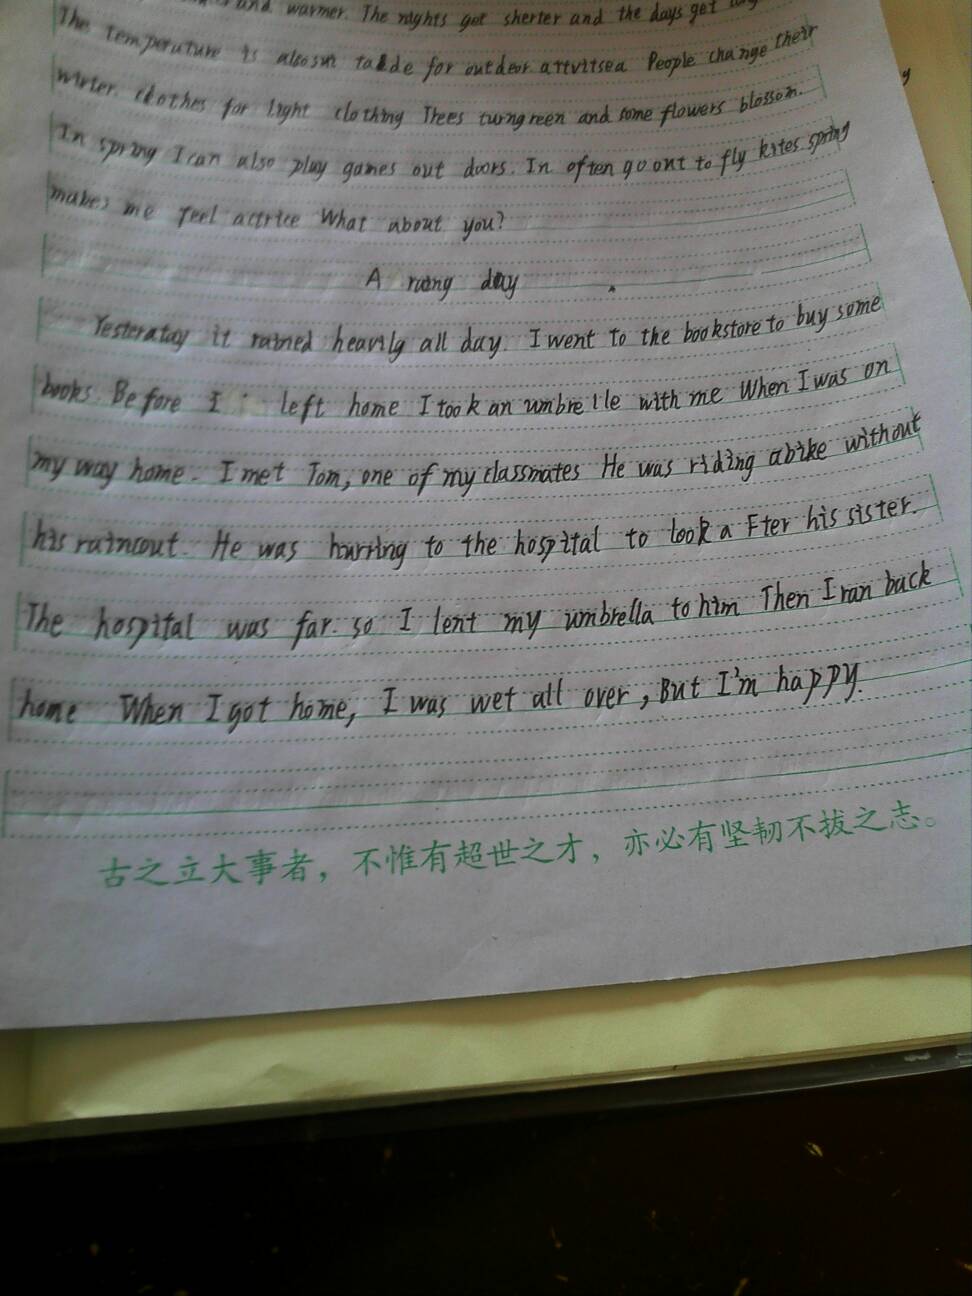 and warmer. The nights get sherter and the days get
The temperature is alsosui takde for outdeor attvitsea People change their
winter clothes for light clothing Trees turngreen and some flowers blossom.
In spring I can also play games out doors. In often go ont to fly kites spring
makes me feel actrice What about you?
A raing day
Yesteratay it rained heavily all day. I went to the bookstore to buy some
books. Before I left home I took an umbrelle with me When I was on
my way home. I met Tom, one of my classmates He was riding abike without
his raincout. He was hurring to the hospital to look a Fter his sister.
The hospital was far. so I lent my umbrella to him Then I ran back
home When I got home, I was wet all over, But I'm happy.
古之立大事者，不惟有超世之才，亦必有坚韧不拔之志。